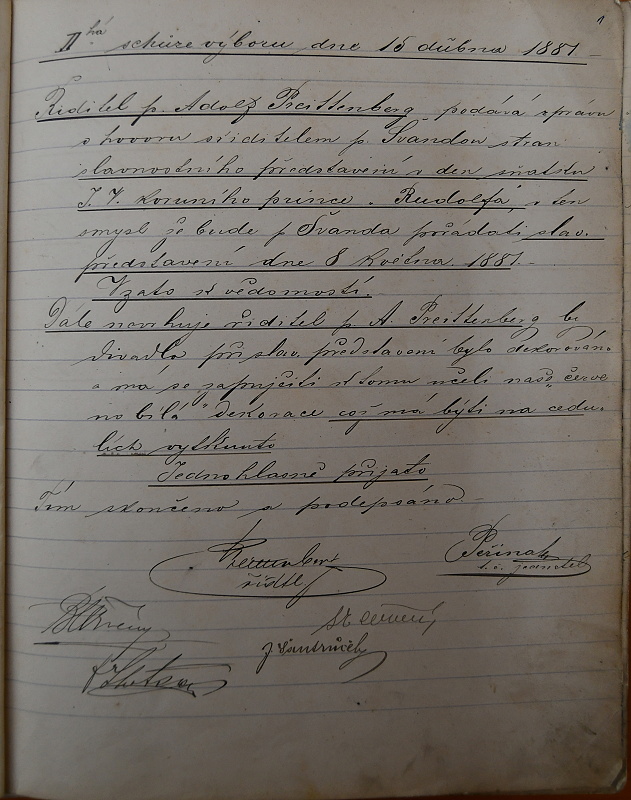 1
IIhá schůze výboru dne 15 dubna 1881
Řiditel p. Adolf Preittenberg podává zprávu
o hovoru s řiditelem p. Švandou stran
slavnostního představení v den sňatku
J. V. korunního prince Rudolfa, v ten
smysl že bude p Švanda pořádati slav.
představení dne 8 května 1881.
Vzato k vědomostí.
Dále navrhuje řiditel p. A. Preittenberg by
divadlo při slav. představení bylo dekorováno
a má se zapujčiti k tomu účeli naše „červe
no bílá" dekorace což má býti na cedu-
lích vytknuto
Jednohlasně přijato
Tím skončeno a podepsáno
Peřinak
jednatel
řidtl
J Šantrůček